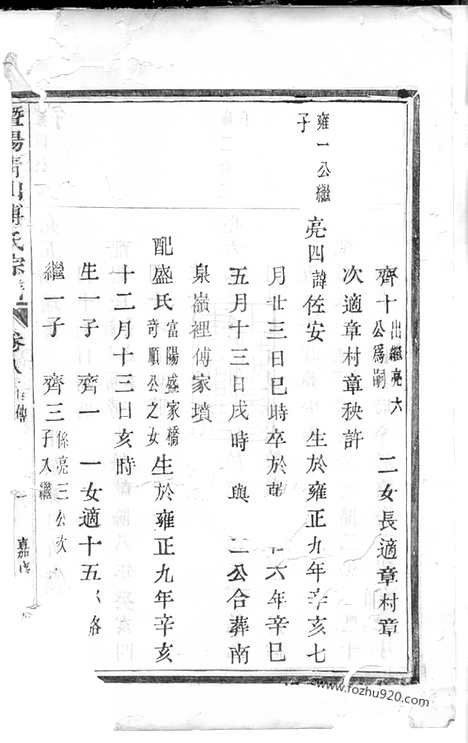 齊十 出繼亮六公爲嗣 二女長適章村章
次適章村章秧許
雍一公繼子
亮四諱佐安 生於雍正九年辛亥七
月廿三日巳時卒於 六年辛巳
五月十三日戌時 與 公合葬南
泉巖裡傅家墳
配盛氏 富陽盛家橋奇順公之女 生於雍正九年辛亥
十二月十三日亥時
生一子 齊一 一女適十五 路
繼一子 齊三 係亮三公次子入繼
暨陽 山傅氏宗譜 卷八 傳 嘉
www.fozhu920.com